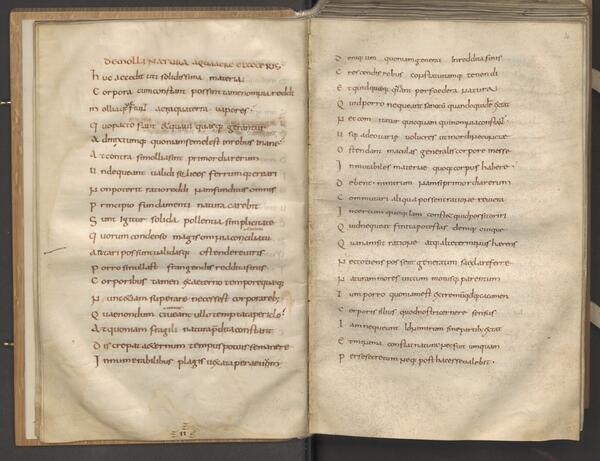 DE MOLLI NATURA AQUA AERE ET CETERIS
huc accedit uti solidissima materiai
Corpora cum constant possint tamen omnia reddi
mollia quae fiunt aer aqua terra vapores
quo pacto fiant et qua vi quaeque gerantur
Admixtum quoniam semel est in rebus inane
At contra si mollia sint primordia rerum
unde queant validi silices ferrumque creari
Non poterit ratio reddi nam funditus omnis
Principio fundamenti natura carebit
Sunt igitur solida pollentia simplicitate
Quorum condenso magis omnia conciliatu
Artari possunt validasque ostendere viris
Porro si nullast frangendis reddita finis
Corporibus tamen ex aeterno tempore quaeque
Nunc etiam superare necessest corporareb;
Quae nondum clueant ullo temptata periclo
At quoniam fragili natura p̄dita constant
Discrepat aeternum tempus potuisse manere
Innumerabilibus plagis vexata per aevom
Denique iam quoniam generatim reddita finis
Crescendis rebus constat vitamque tenendi
Et quid quaeque queant per foedera naturai
Quid porro nequeant sancitum quandoquidem extat
Nec commutatur quicquam quin omnia constant
usque adeo variae volucres ut in ordine cunctae
Ostendant maculas generalis corpore inesse
Inmutabiles materiae quoque corpus habere
Debent nimirum nam si primordia rerum
Commutari aliqua possent ratione revicta
Incertum quoque iam constet quid possit oriri
Quid nequeat finita potestas denique cuique
Quanam sit ratione atque alte terminus haerens
Nec totiens possent generatim saecla referre
Naturam mores victum motusque parentum
Tum porro quoniam est extremum quodque cacumen
Corporis illius quod nostri cernere sensus
Iam nequeunt id nimirum sine partibus extat
Et minima constat natura nec fuit umquam
Per se secretum neque posthac esse valebit